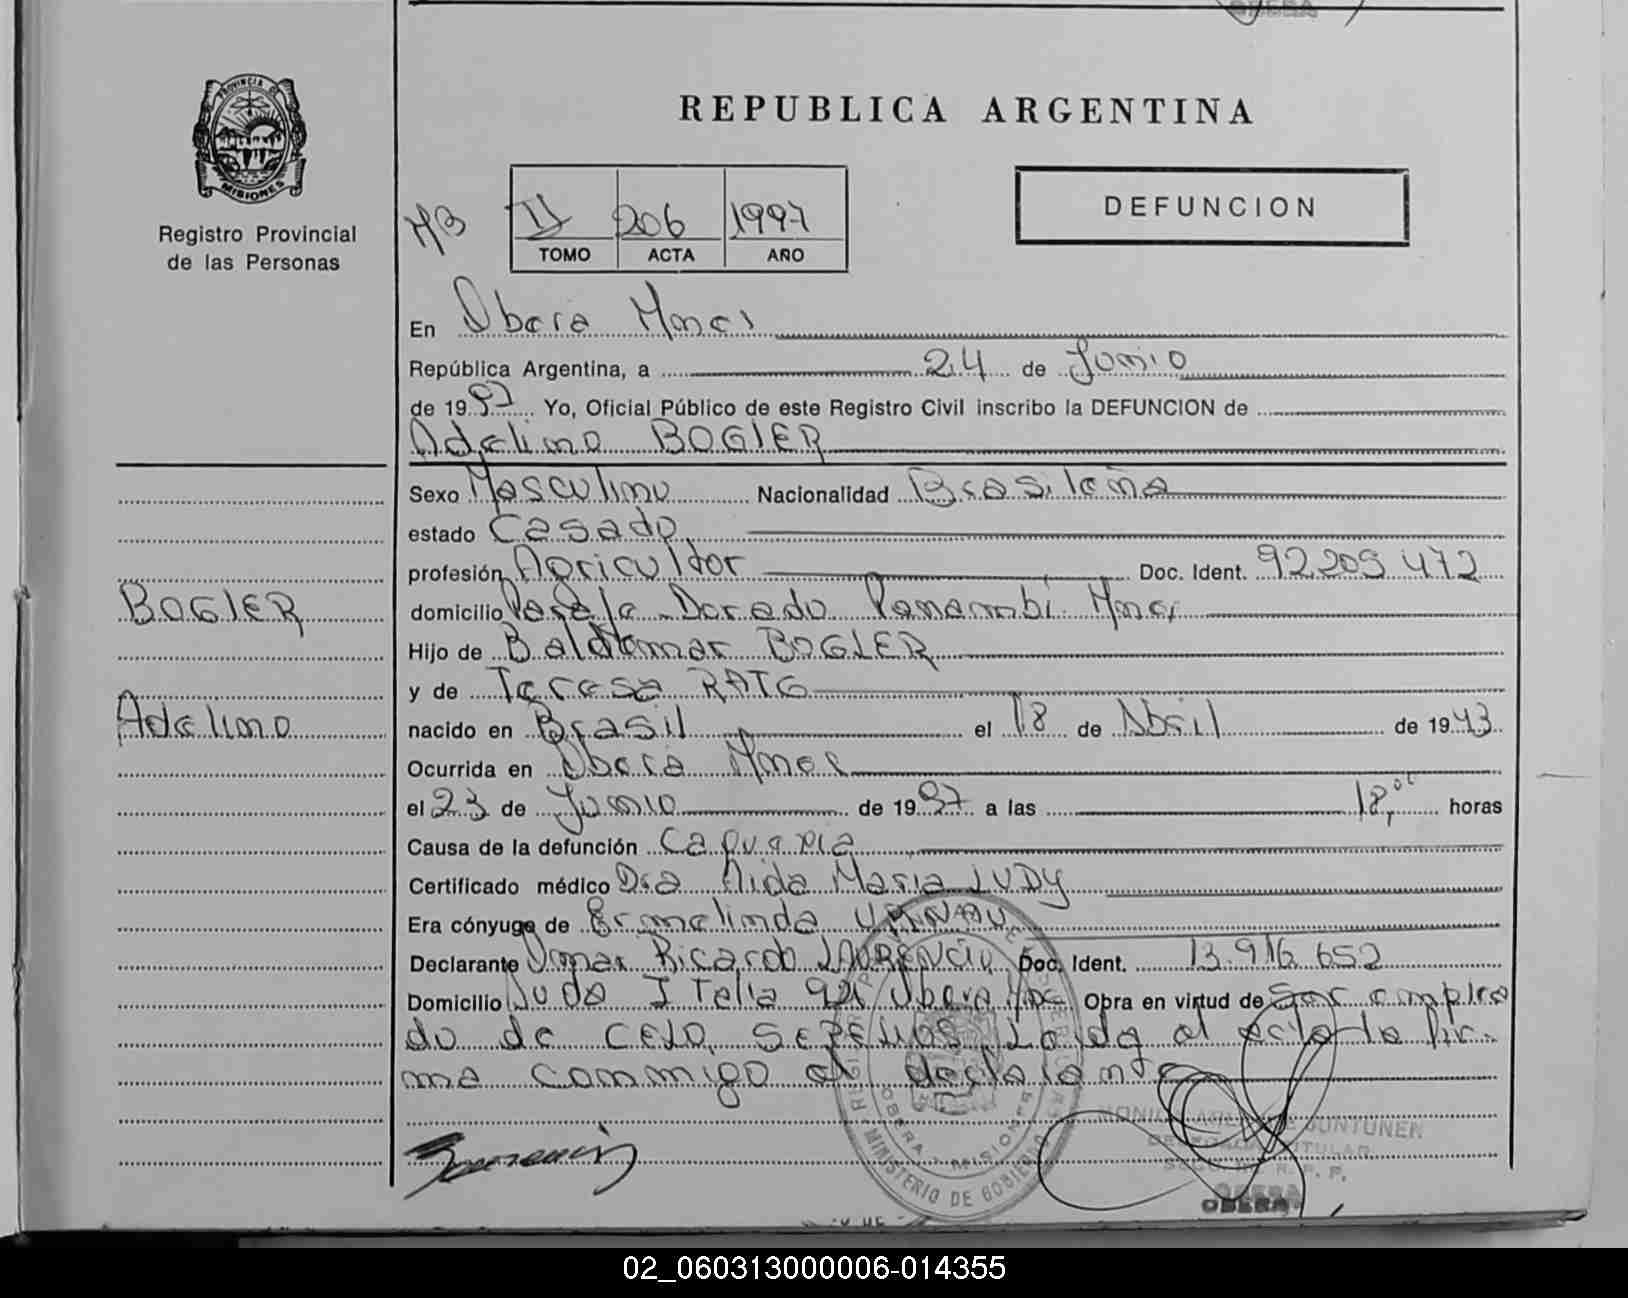 REPUBLICA ARGENTINA
PROVINCIA DE
MISIONES
Registro Provincial
de las Personas
II 206 1997
TOMO ACTA AÑO
DEFUNCION
En Obera Mnes
República Argentina, a 24 de Junio
de 1997 Yo, Oficial Público de este Registro Civil inscribo la DEFUNCION de
Adelino BOGLER
Sexo Masculino Nacionalidad Brasileña
estado Casado
profesión Agricultor Doc. Ident. 92.209.472
BOGLER
domicilio Dorado Panambi Mnes
Hijo de Baldomar BOGLER
y de Teresa RATG
Adelino
nacido en Brasil el 18 de Abril de 1943
Ocurrida en Obera Mnes
el 23 de Junio de 1997 a las 18,00 horas
Causa de la defunción Caquexia
Certificado médico Dra Aida Maria LUDY
Era cónyuge de Ermelinda
Declarante Omar Ricardo LAURENCIO Doc. Ident. 13.916.652
Domicilio Obera Mnes Obra en virtud de Ser emplea
do de CELO, SEPELIOS. Leida el acta la fir
ma conmigo el declarante
MINISTERIO DE GOBIERNO
OBERA MISIONES
JUNTUNEN
TITULAR
R. P. P.
OBERA
02_060313000006-014355